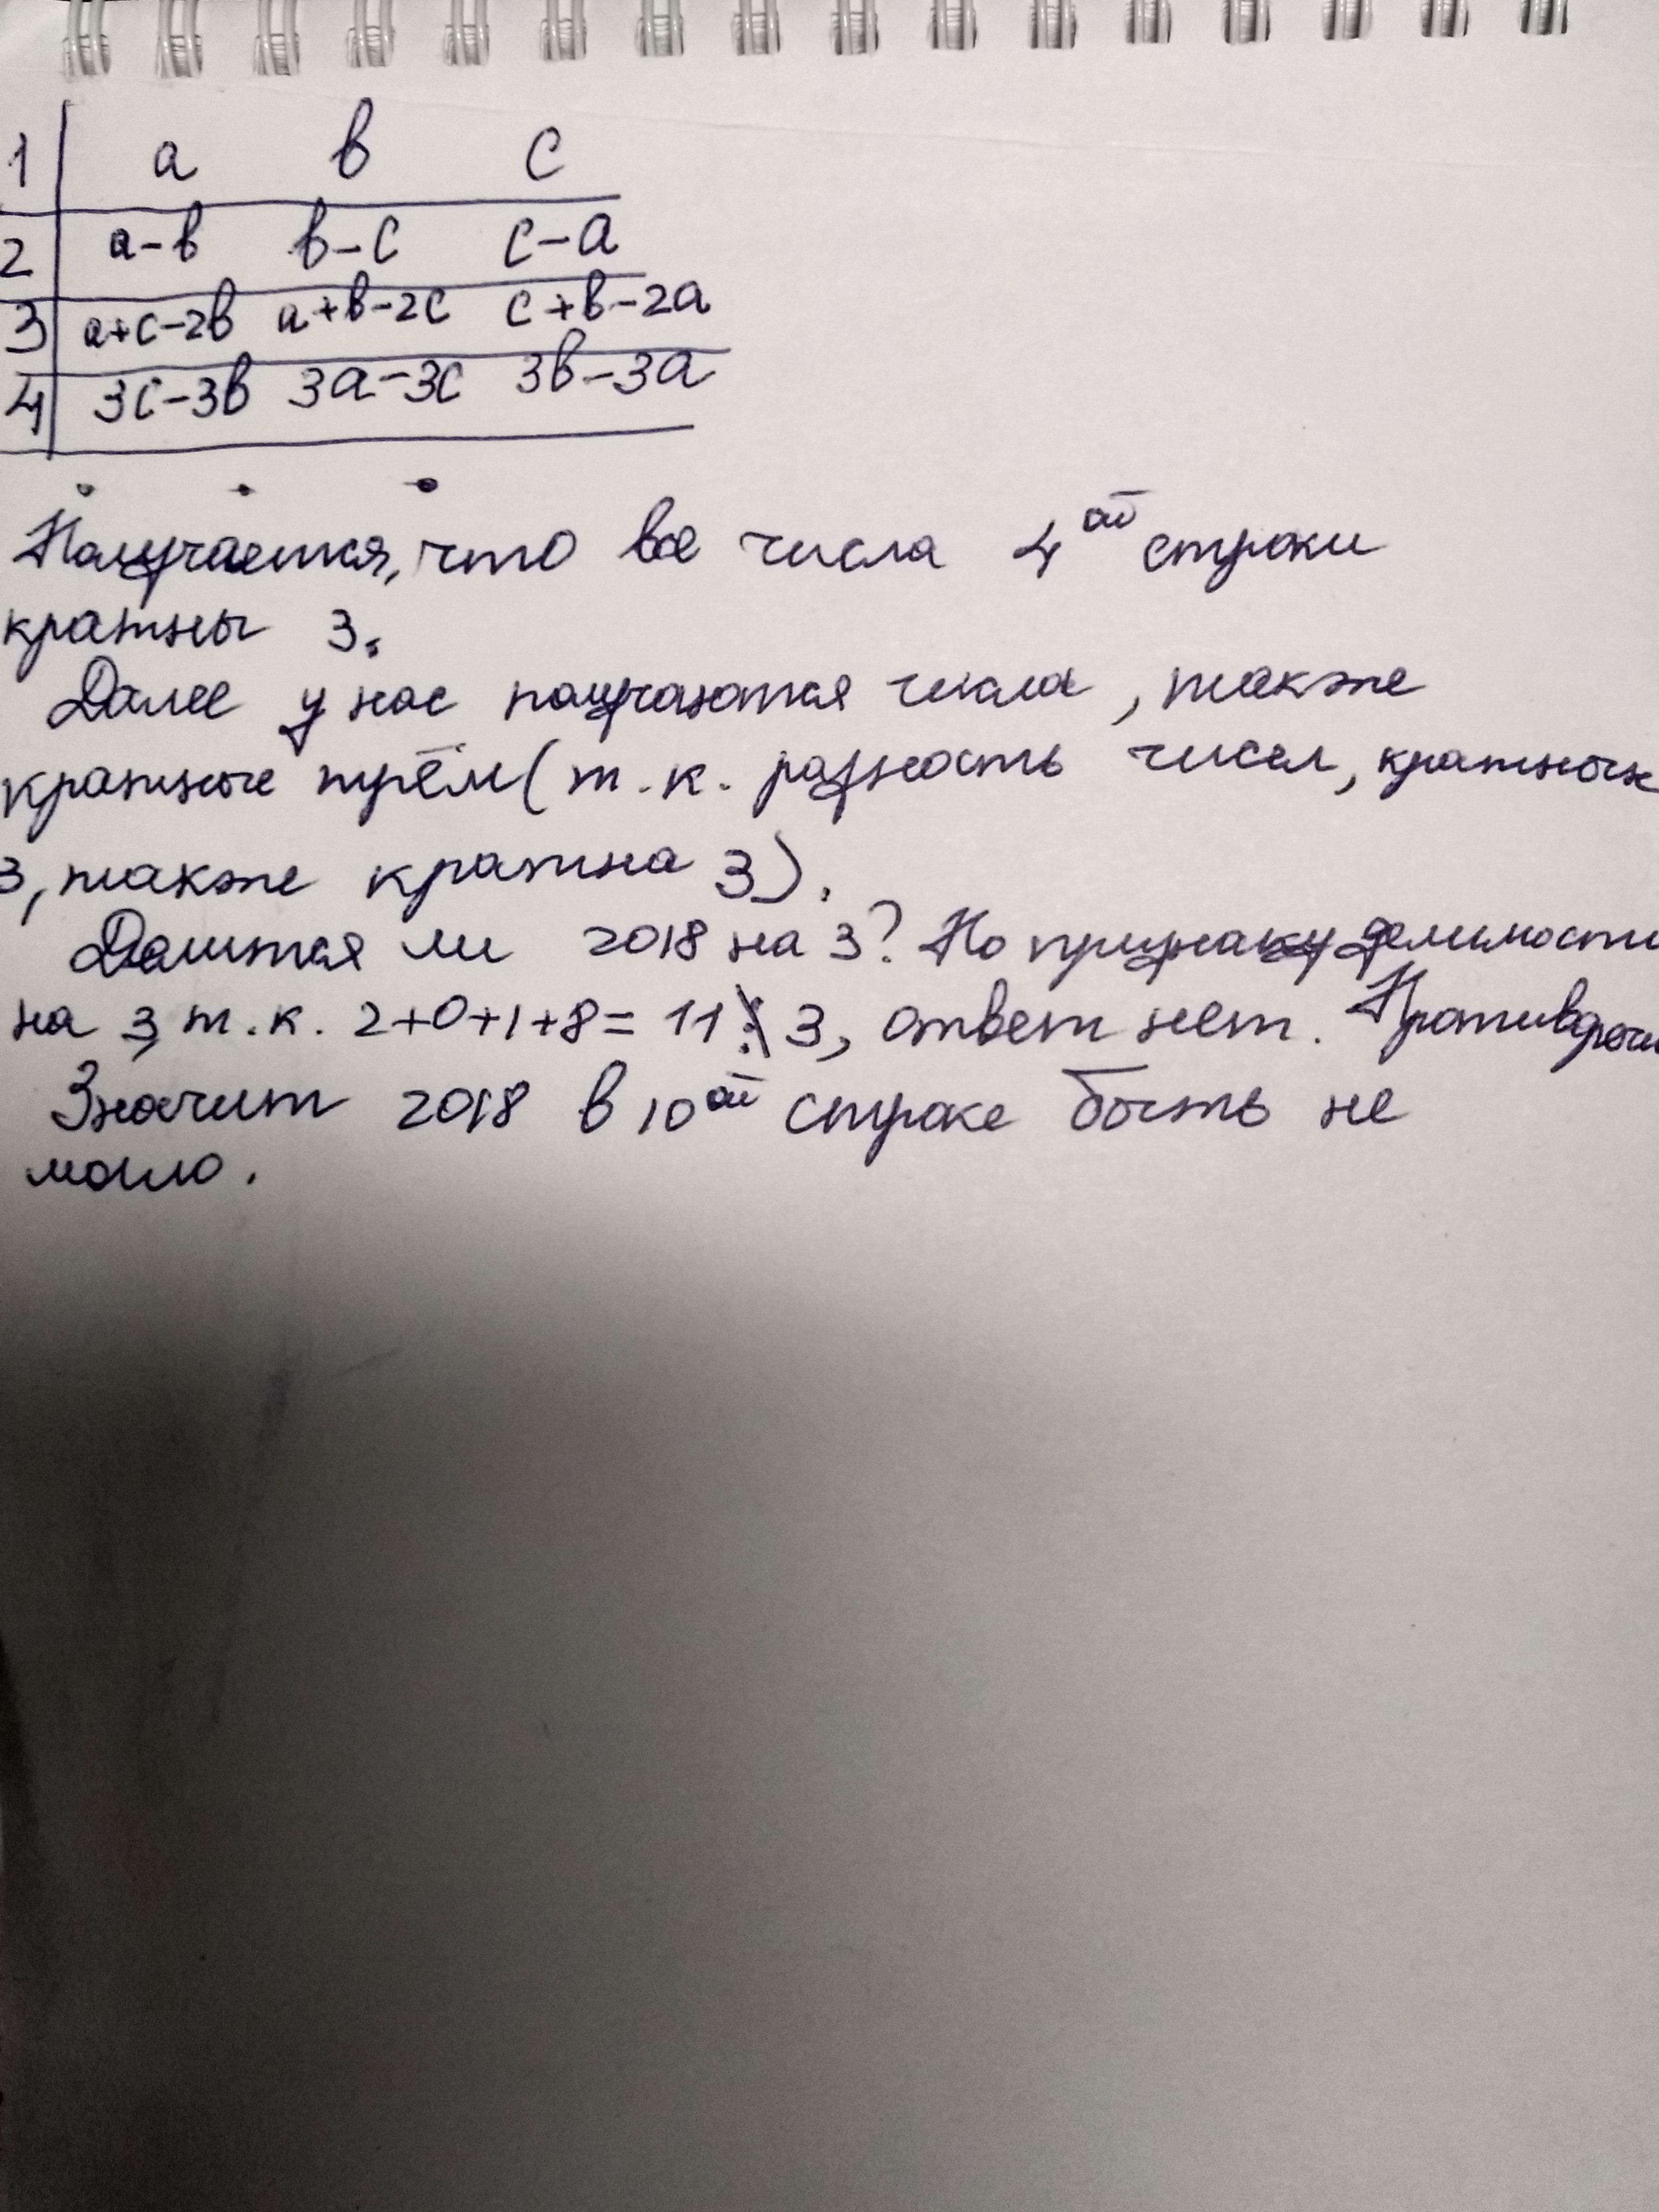 1 а в с
2 а-в в-с с-а
3 а+с-2в а+в-2с с+в-2а
4 3с-3в 3а-3с 3в-3а
Получается, что все числа 4ой строки
кратны 3.
Далее у нас получаются числа, также
кратные трём (т.к. разность чисел, кратных
3, также кратна 3).
Делится ли 2018 на 3? По признаку делимости
на 3, т.к. 2+0+1+8=11 ⋮̸ 3, ответ нет. Противореч
Значит 2018 в 10ой строке быть не
могло.